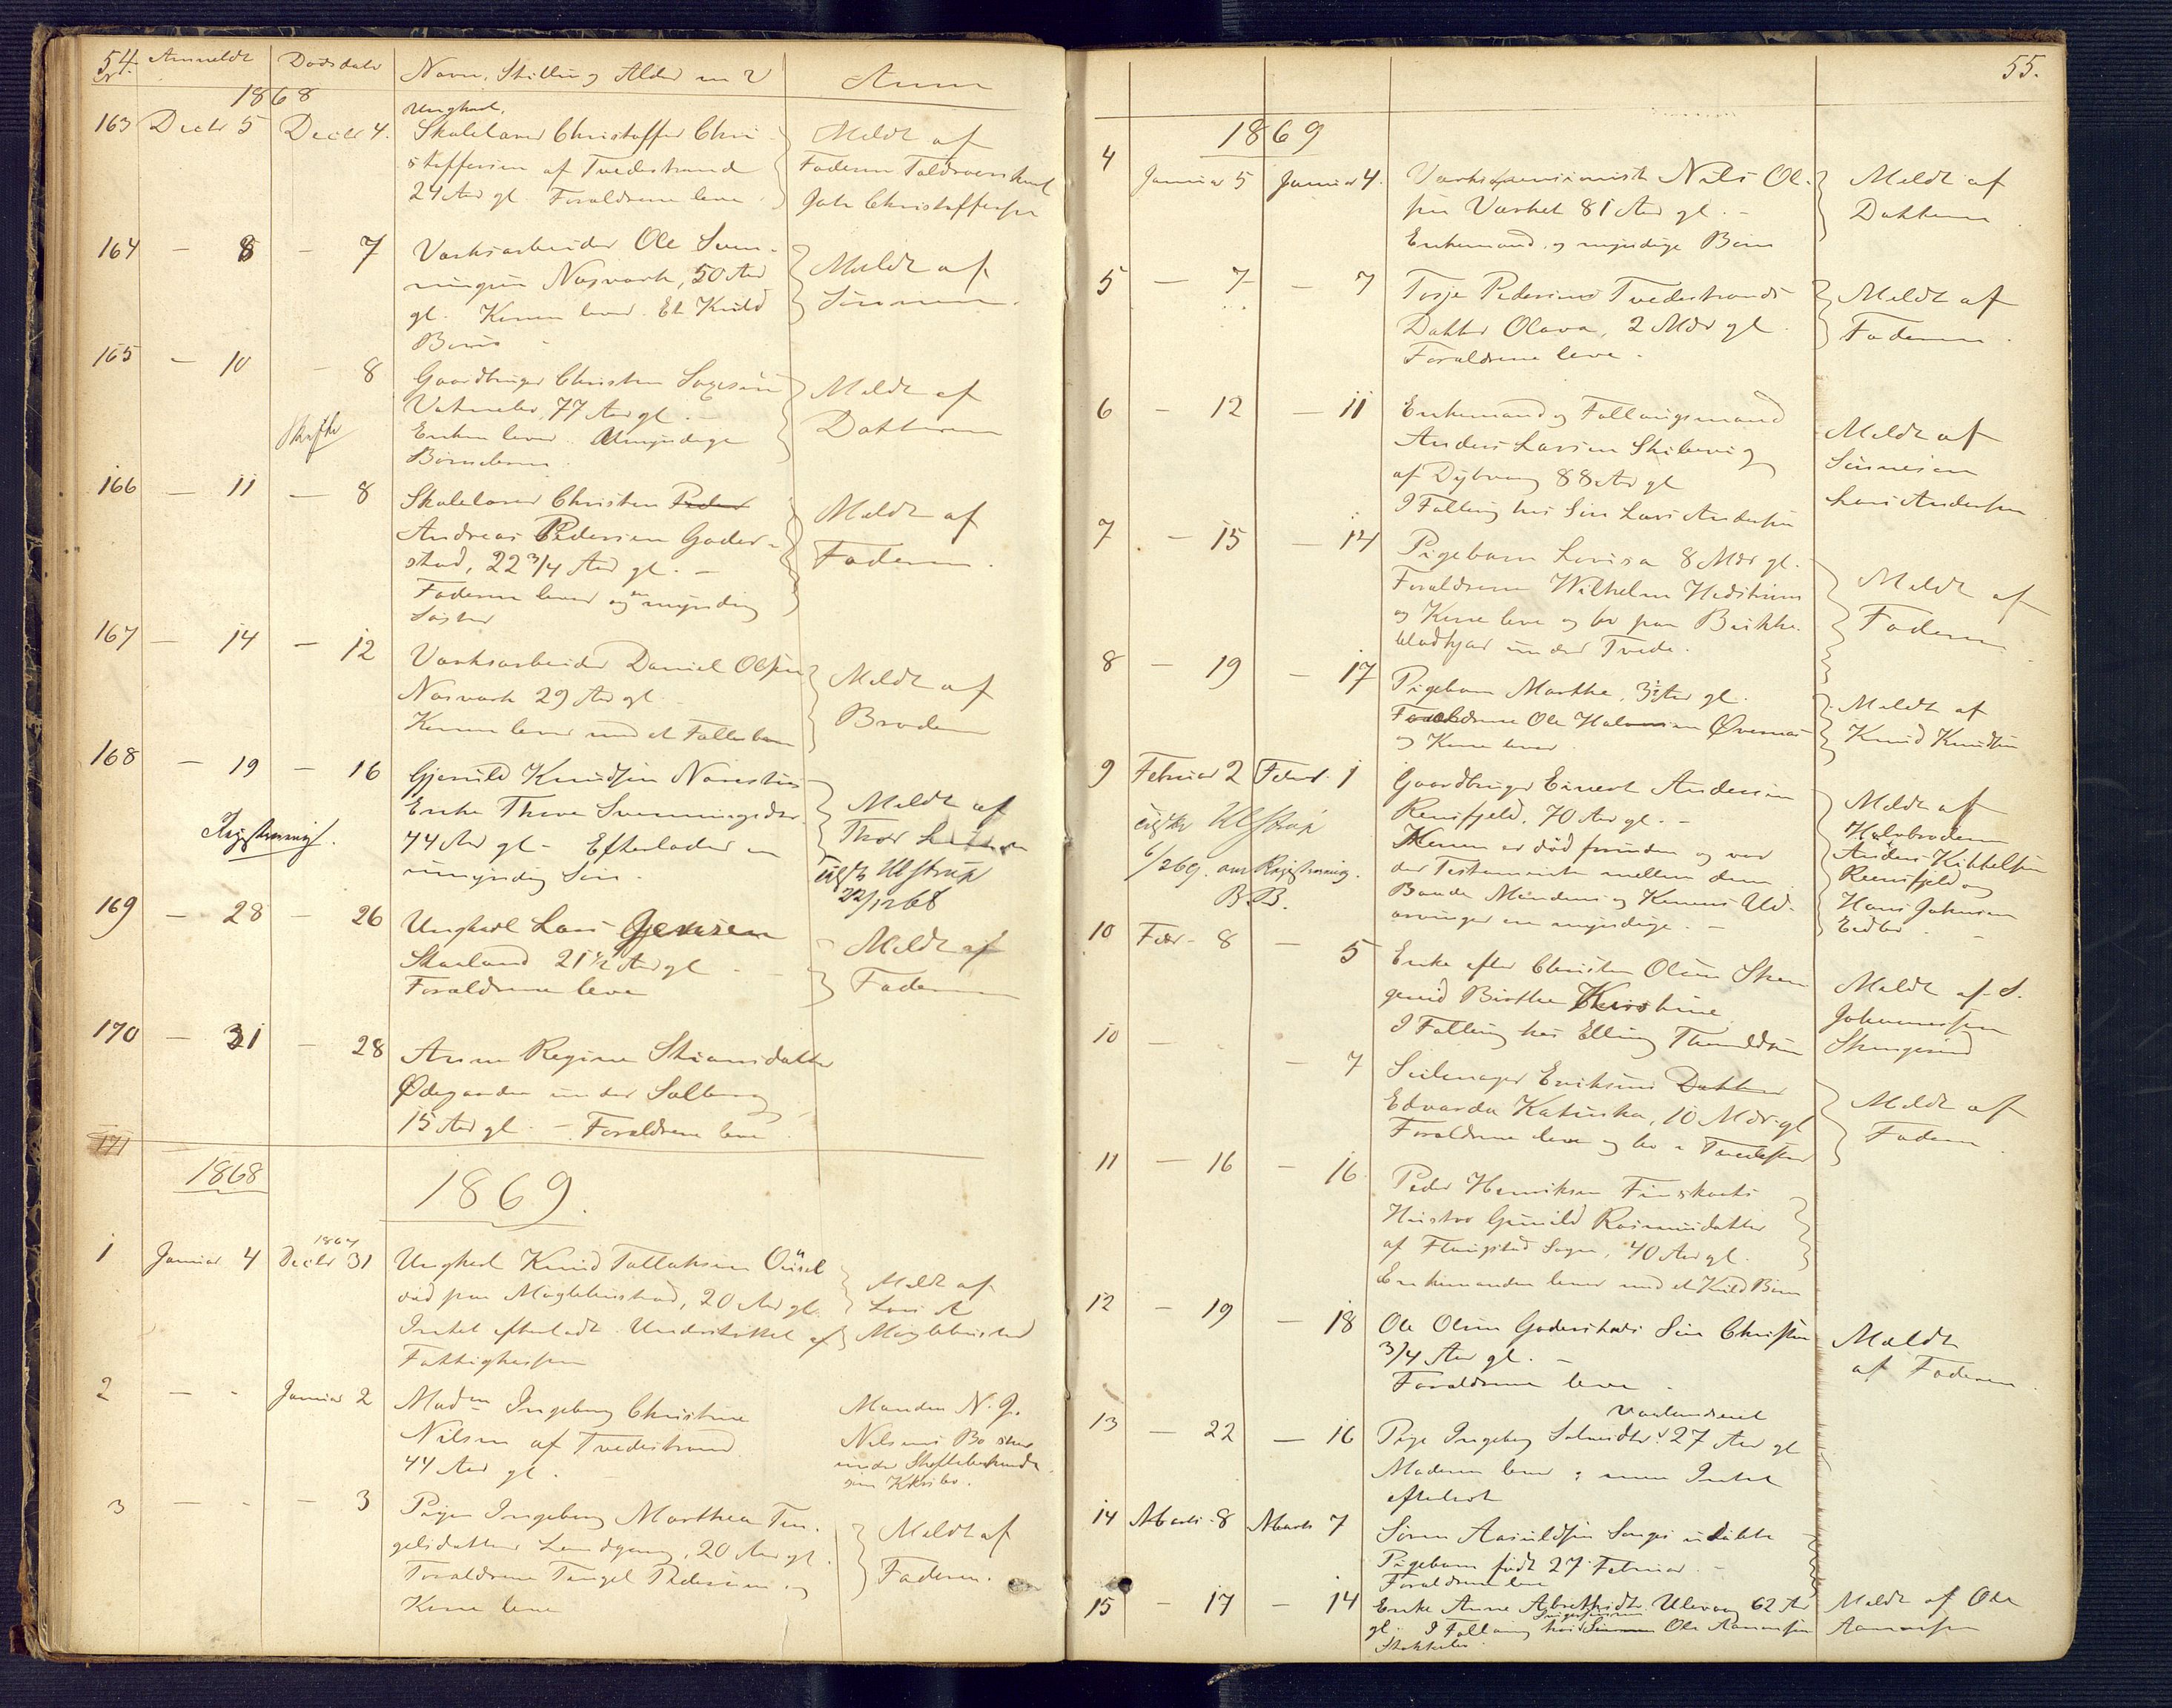 54.
Nr Anmeldt Dødsdato Navn, Stilling, Alder m V Anm
1868
163 Decbr 5 Decbr 4. Ungkarl,
Skolelærer Christoffer Chri-
stoffersen af Tvedestrand
24 Aar gl. Forældrene leve.
Meldt af
Faderen Toldroerskarl
Christoffersen
164 - 8 - 7 Værksarbeider Ole Sven-
ningsen Næsværk, 50 Aar
gl. Konen lever. Et Kuld
Børn
Meldt af
Sønnen.
165 - 10 - 8 Gaardbruger Christen
77 Aar gl. -
Enken lever. Umyndige
Børnebørn.
Skifte
Meldt af
Datteren
166 - 11 - 8 Skolelærer Christen Peder
Andreas Pedersen Goder-
stad, 22 3/4 Aar gl. -
Faderen lever og en myndig
Søster
Meldt af
Faderen.
167 - 14 - 12 Værksarbeider Daniel Olsen
Næsværk 29 Aar gl.
Konen lever med et Fællesbarn
Meldt af
Broderen
168 - 19 - 16 Knudsen
Enke Thore Svenningsdtr.
44 Aar gl - Efterlader en
umyndig Søn.
Registrering.
Meldt af
Thor
Ulstrup
22/12 68
169 - 28 - 26 Ungkarl Lars Jensen
Skarland 21 1/2 Aar gl
Forældrene leve
Meldt af
Faderen
170 - 31 - 28 Anne Regine Stiansdatter
Ødegaarden under Solberg
15 Aar gl. - Forældrene leve.
171
1868
1869.
1 Januar 4 Decbr 31 Ungkarl Knud Tallaksen
paa Møglebustad, 20 Aar gl.
Intet efterladt. Understøttet af
Fattigkassen
Meldt af
Lars A
Møglebustad
2 - - Januar 2 Madm Ingeborg Christine
Nilsen af Tvedestrand
44 Aar gl.
Manden N. J.
Nilsens Bo
under Skiftebehandl.
3 - - - 3 Pigen Ingeborg Marthea Ten-
gelsdatter Landgang, 20 Aar gl.
Forældrene Tengel Pedersen og
Kone leve
Meldt af
Faderen.
55.
1869
4 Januar 5 Januar 4. Værkspensionist Nils Ol-
sen Værket 81 Aar gl. -
Enkemand og myndige Børn
Meldt af
Datteren
5 - 7 - 7 Terje Pedersens Tvedestrands
Datter Olava, 2 Mdr gl.
Forældrene leve.
Meldt af
Faderen.
6 - 12 - 11 Enkemand og Føllaugsmand
Anders Larsen Skibevig
af Dybvaag 88 Aar gl
I Føllaug hos Søn Lars Andersen
Meldt af
Sønnen
Lars Andersen
7 - 15 - 14 Pigebarn Lovisa 8 Mdr gl.
Forældrene Wilhelm Hedstrøm
og Kone leve og bo paa
under Tvede.
Meldt af
Faderen.
8 - 19 - 17 Pigebarn Marthe, 3 1/2 Aar gl.
Forældrene Ole Halvorsen Øvernæs
og Kone lever.
Meldt af
Knud Knudsen
9 Februar 2 Febr. 1 Gaardbruger Einert Andersen
Reinsfjeld, 70 Aar gl. -
Konen er død forinden og var
der Testamente mellem dem.
Baade Mandens og Konens Ud-
arvinger ere myndige. -
Ulstrup
6/2 69. om Registrering.
B.B.
Meldt af
Halvbroderen
Anders Kittelsen
Reinsfjeld og
Hans Johnsen
Eidbo.
10 Febr - 8 - 5 Enke efter Christen Olsen
Birthe Kirstine
I Føllaug hos Elling
Meldt af S.
Johannessen
10 - - 7 Seilmager Eriksens Datter
Edvarda Katinka, 10 Mdr. gl
Forældrene leve og bo i Tvedestrand
Meldt af
Faderen.
11 - 16 - 16 Peder Henriksen
Hustro Gunild Rasmusdatter
af Flangstad Sogn, 40 Aar gl.
Enkemanden lever med et Kuld Børn
12 - 19 - 18 Ole Olsen Goderstads Søn Christen
3/4 Aar gl. -
Forældrene leve.
Meldt
af Faderen.
13 - 22 - 16 Pige Ingeborg 27 Aar gl
Moderen lever; men Intet
efterladt
14 Marts - 8 Marts 7 Søren udøbte
Pigebarn født 27 Februar. -
Forældrene leve
15 - 17 - 14 Enke Anne Ulevaag 62 Aar
gl. I Føllaug hos Ole Aanonsen
Stokkebo.
Meldt af Ole
Aanonsen